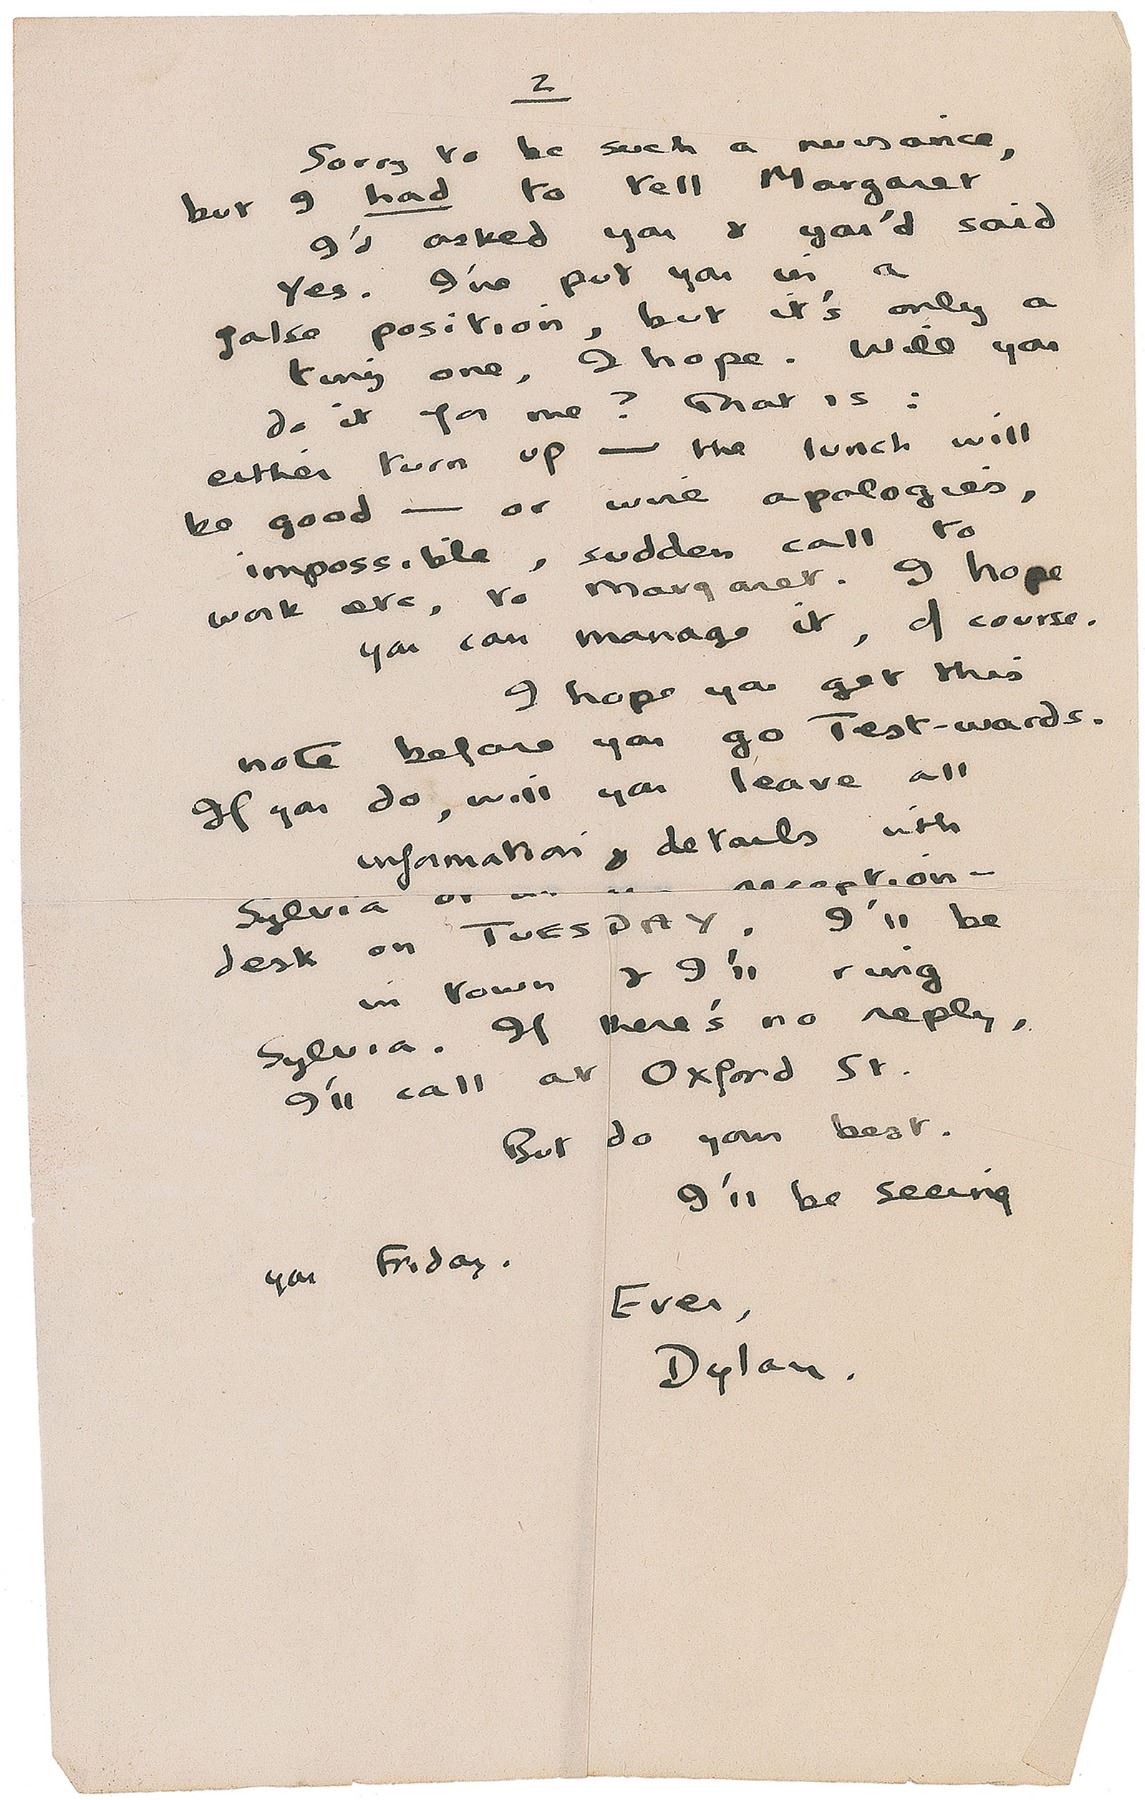 2
Sorry to be such a nuisance,
but I had to tell Margaret
I'd asked you & you'd said
Yes. I've put you in a
false position, but it's only a
tiny one, I hope. Will you
do it for me? That is:
either turn up — the lunch will
be good — or wire apologies,
impossible, sudden call to
work etc, to Margaret. I hope
you can manage it, of course.
I hope you get this
note before you go Test-wards.
If you do, will you leave all
information & details with
Sylvia or reception-
desk on TUESDAY. I'll be
in town & I'll ring
Sylvia. If there's no reply,
I'll call at Oxford St.
But do your best.
I'll be seeing
you Friday.
Ever,
Dylan.